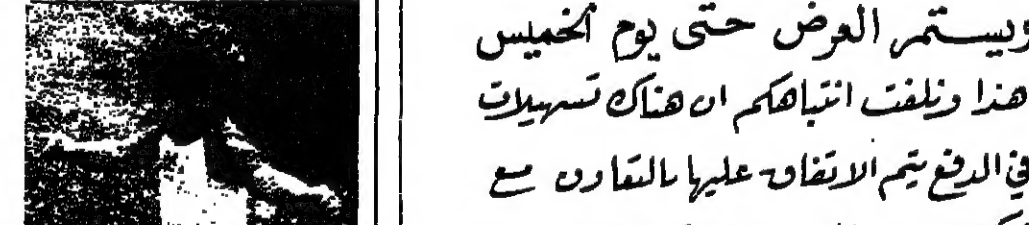 ويستمر العرض حتى يوم الخميس
هذا ونلفت انتباهكم ان هناك تسهيلات
في الدفع يتم الاتفاق عليها بالتعاون مع